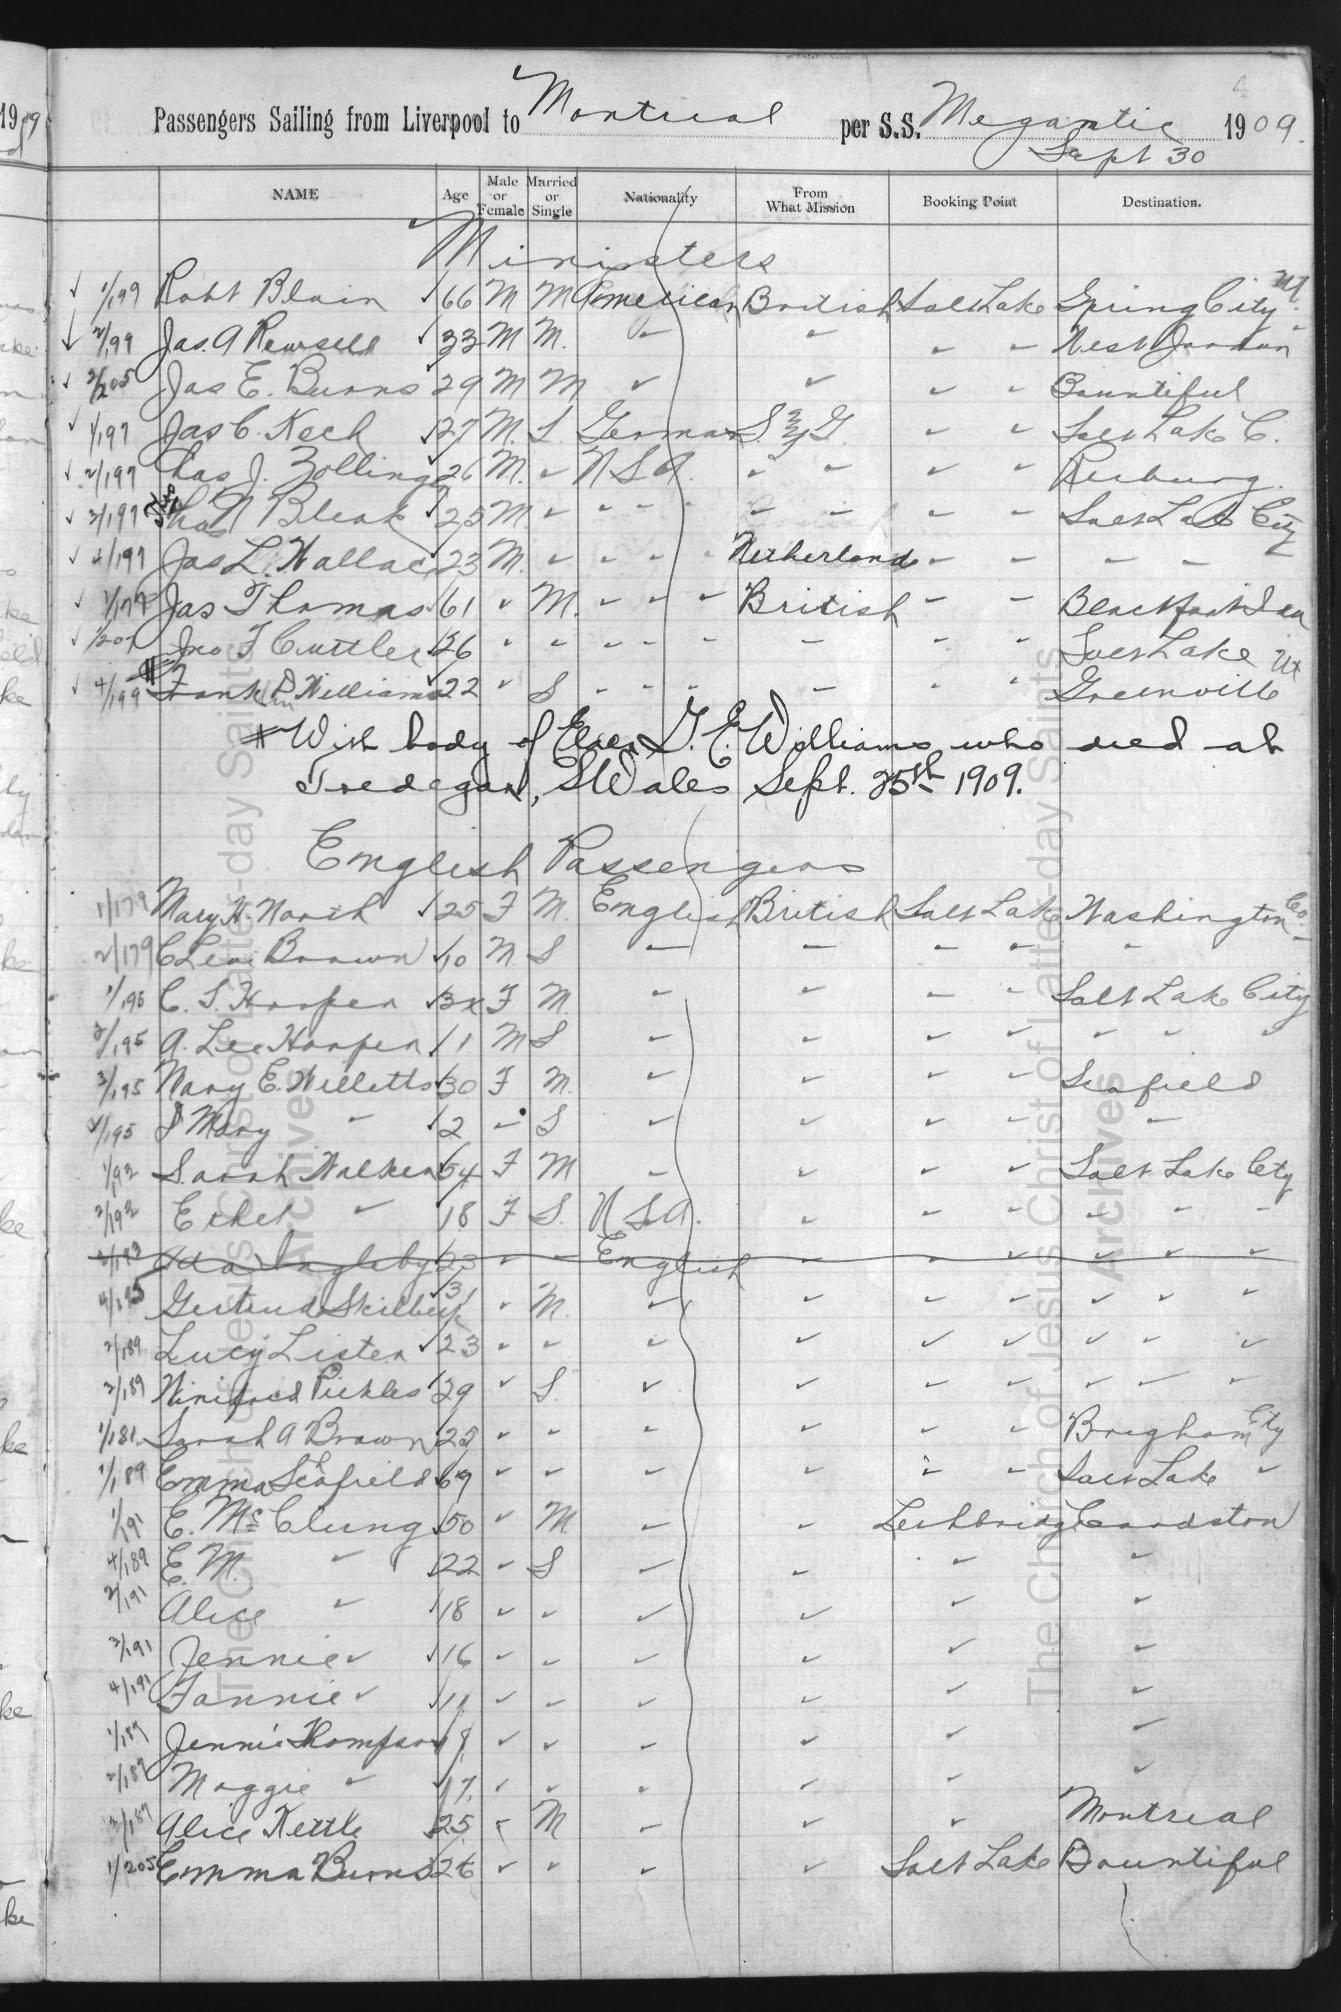 1909
Passengers Sailing from Liverpool to Montreal per S.S. Megantic 1909.
Sept 30
NAME Age Male or Female Married or Single Nationality From What Mission Booking Point Destination.
Ministers
1/199 Robt Blain 66 M M American British Salt Lake Spring City Ut.
2/199 Jas. A Rewsell 33 M M. " " " " West Jordan "
2/205 Jas E. Burns 29 M M " " " " Bountiful
1/197 Jas C. Keck 27 M. S. German S. & G. " " Salt Lake C.
2/197 Chas J. Zollinger 26 M. " U S A. " " " " Rexburg.
3/197 N Bleak 25 M " " " " " " " " Salt Lake City
4/197 Jas L. Wallace 23 M. " " " " Netherland " " " "
1/177 Jas Thomas 61 " M. " " " British " " Blackfoot Ida
1/207 Jno T Cuttler 26 " " " " " " " " Salt Lake Ut
4/199 # Frank D Williams 22 " S " " " " " " Greenville
# With body of Elder G. E. Williams who died at
Tredegar, S Wales Sept. 25th 1909.
English Passengers
1/179 Mary H. North 25 F M. English British Salt Lake Washington Co.
2/179 C Levi Brown 10 M S " " " " " "
1/195 C. S. Hooper 3x F M. " " " " Salt Lake City
2/195 A. Lee Hooper 11 M S " " " " " " "
3/195 Mary E. Willetts 30 F M. " " " " Seafield
4/195 Mary " 2 " S " " " " "
1/193 Sarah Walker 54 F M " " " " Salt Lake City
2/193 Ethel " 18 F S. U S A. " " " " " "
Ada Ingleby 23 " " English " " " " " "
4/195 Gertrude Skilbeck 31 " M. " " " " " " "
2/189 Lucy Lister 23 " " " " " " " " "
3/189 Winifred Pickles 29 " S. " " " " " " "
1/181 Sarah A Brown 25 " " " " " " Brigham City
1/189 Emma Seafield 69 " " " " " " Salt Lake "
1/191 E. McClung 50 " M " " Lethbridge Cardston
4/189 E. M. " 22 " S " " " "
2/191 Alice " 18 " " " " " "
3/191 Jennie " 16 " " " " " "
4/191 Fannie " 11 " " " " " "
1/187 Jennie Thompson 19 " " " " " "
2/187 Maggie " 17. " " " " " "
3/187 Alice Kettle 25 " M " " " Montreal
1/205 Emma Burns 26 " " " " Salt Lake Bountiful
The Church of Jesus Christ of Latter-day Saints
Archives
The Church of Jesus Christ of Latter-day Saints
Archives